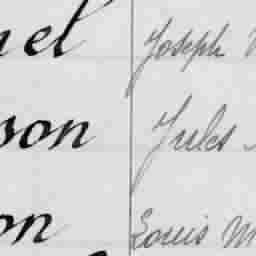 nel Joseph
son Jules
on Louis M